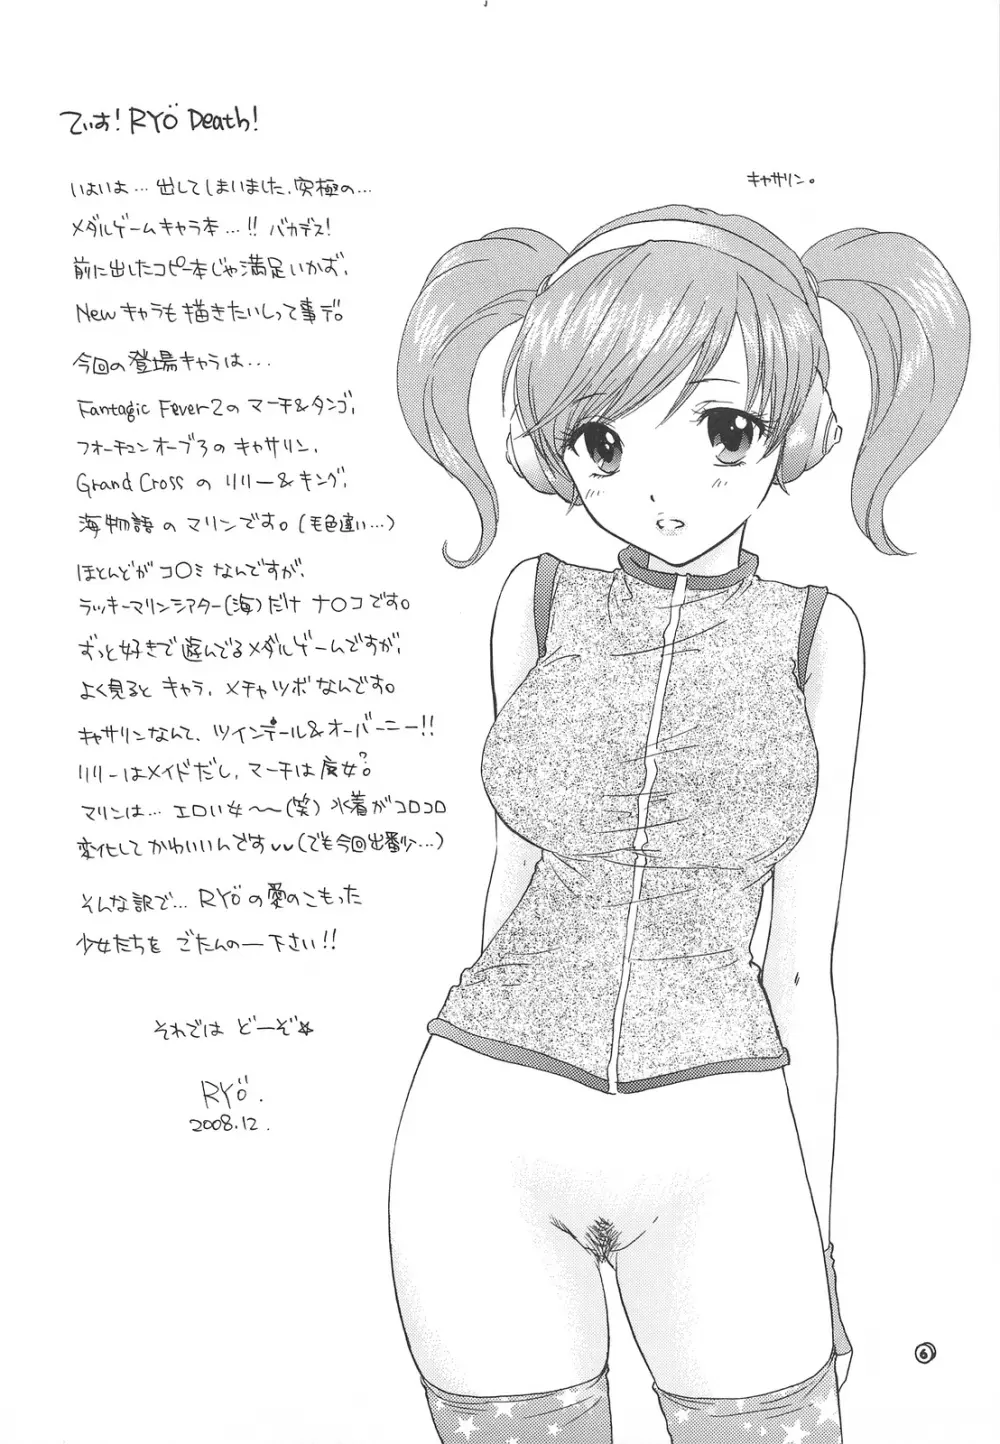 てぃす！RYÖ Death！
いよいよ…出してしまいました、究極の…
メダルゲームキャラ本…!! バカデス！
前に出したコピー本じゃ満足いかず、
Newキャラも描きたいしって事デ。
今回の登場キャラは…
Fantagic Fever2の マーチ&タンゴ、
フォーチュンオーブ3の キャサリン、
Grand Crossの リリー&キング、
海物語の マリンです。(毛色違い…)
ほとんどが コ〇ミ なんですが、
ラッキーマリンシアター(海)だけ ナ〇コです。
ずっと好きで遊んでるメダルゲームですが、
よく見ると キャラ、メチャツボなんです。
キャサリンなんて、ツインテール&オーバーニー!!
リリーはメイドだし、マーチは魔女?。
マリンは… エロい女〜〜(笑) 水着がコロコロ
変化して かわいいんですvv(でも今回出番少…)
そんな訳で… RYÖの愛のこもった
少女たちを ごたんのー下さい!!
それでは どーぞ☆
RYÖ.
2008.12.
キャサリン。
6